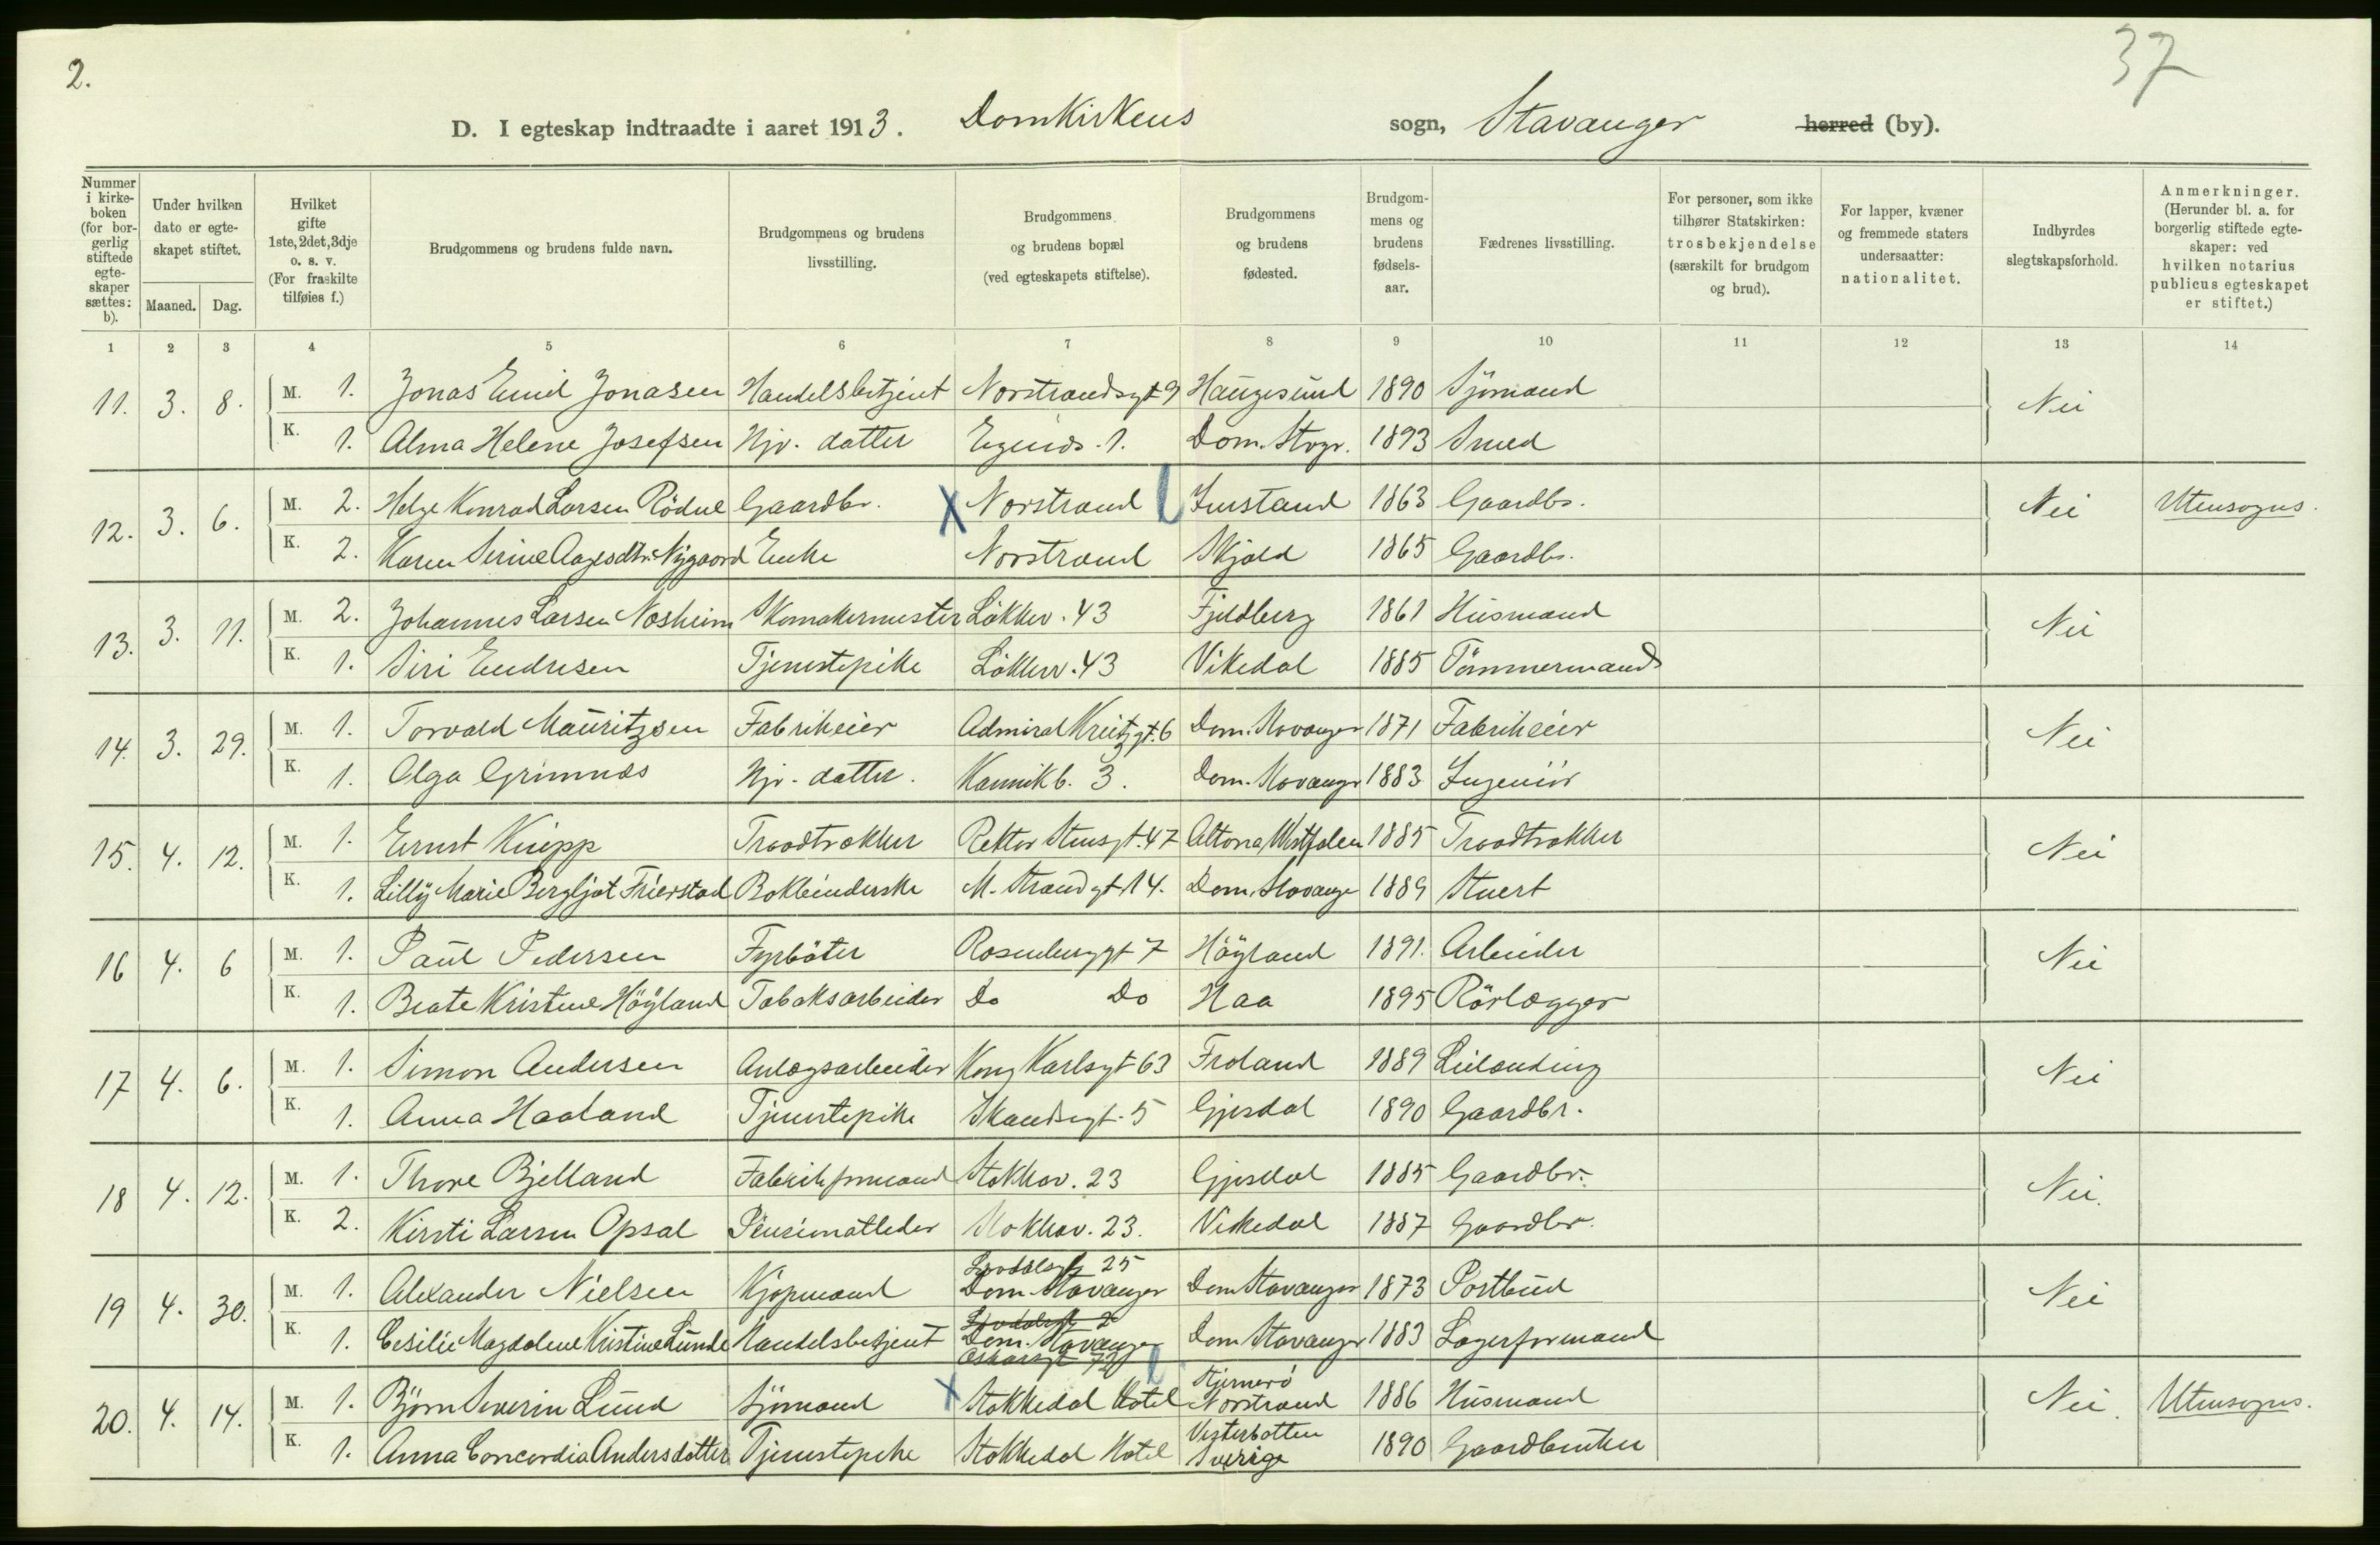 2.
37
D. I egteskap indtraadte i aaret 1913. Domkirkens sogn, Stavanger herred (by).
Nummer i kirkeboken (for borgerlig stiftede egteskaper sættes: b).
Under hvilken dato er egteskapet stiftet.
Maaned. Dag.
Hvilket gifte 1ste, 2det, 3dje o. s. v. (For fraskilte tilføies f.)
Brudgommens og brudens fulde navn.
Brudgommens og brudens livsstilling.
Brudgommens og brudens bopæl (ved egteskapets stiftelse).
Brudgommens og brudens fødested.
Brudgommens og brudens fødselsaar.
Fædrenes livsstilling.
For personer, som ikke tilhører Statskirken: trosbekjendelse (særskilt for brudgom og brud).
For lapper, kvæner og fremmede staters undersaatter: nationalitet.
Indbyrdes slegtskapsforhold.
Anmerkninger. (Herunder bl. a. for borgerlig stiftede egteskaper: ved hvilken notarius publicus egteskapet er stiftet.)
1 2 3 4 5 6 7 8 9 10 11 12 13 14
11. 3. 8. M. 1. Jonas Emil Jonasen Handelsbetjent Norstrandsgt 9 Haugesund 1890 Sjömand Nei
K. 1. Alma Helene Josefsen Hjv. datter Egends. 1. Dom. Stvgr. 1893 Smed
12. 3. 6. M. 2. Helge Konrad Larsen Rödne Gaardbr. X Norstrand Imstand 1863 Gaardbr. Nei Utensogns.
K. 2. Karen Serine Aagesdtr. Nygaard Enke Norstrand Skjold 1865 Gaardbr.
13. 3. 11. M. 2. Johannes Larsen Nosheim Skomakermester Lökkev. 43 Fjeldberg 1861 Husmand Nei
K. 1. Siri Endresen Tjenestepike Lökkev. 43 Vikedal 1885 Tömmermand
14. 3. 29. M. 1. Torvald Mauritzsen Fabrikeier Admiral Kreutzgt. 6 Dom. Stavanger 1871 Fabrikeier Nei
K. 1. Olga Grimnes Hjv. datter. Kannikb. 3. Dom. Stavanger 1883 Ingeniör
15. 4. 12. M. 1. Ernst Knipp Traadtrækker Rektor Stensgt. 47 Altona Westfalen 1885 Traadtrækker Nei
K. 1. Lilly Marie Bergljot Frierstad Bokbinderske M. Strandgt 14. Dom. Stavanger 1889 Stuert
16 4. 6 M. 1. Paul Pedersen Fyrböter Rosenberggt 7 Höyland 1891. Arbeider Nei
K. 1. Beate Kristine Höyland Tobaksarbeider Do Do Haa 1895 Rörlægger
17 4. 6. M. 1. Simon Andersen Anlægsarbeider Kong Karlsgt 63 Froland 1889 Leilænding Nei
K. 1. Anna Haaland Tjenestepike Skandsegt. 5 Gjesdal 1890 Gaardbr.
18 4. 12. M. 1. Thore Bjelland Fabrikformand Stokkav. 23 Gjesdal 1885 Gaardbr. Nei.
K. 2. Kirsti Larsen Opsal Pensionatleder Stokkav. 23. Vikedal 1887 Gaardbr.
19 4. 30. M. 1. Alexander Nielsen Kjöpmand 25 Dom. Stavanger Dom Stavanger 1873 Postbud Nei
K. 1. Cesilie Magdalene Kristine Lunde Handelsbetjent Dom. Stavanger Oskarsgt 72 Dom Stavanger 1883 Lagerformand
20. 4. 14. M. 1. Björn Severin Lund Sjömand X Stokkedal Hotel Stjernerö Norstrand 1886 Husmand Nei. Utensogns.
K. 1. Anna Concordia Andersdotter Tjenestepike Stokkedal Hotel Vesterbotten Sverige 1890 Gaardbruker